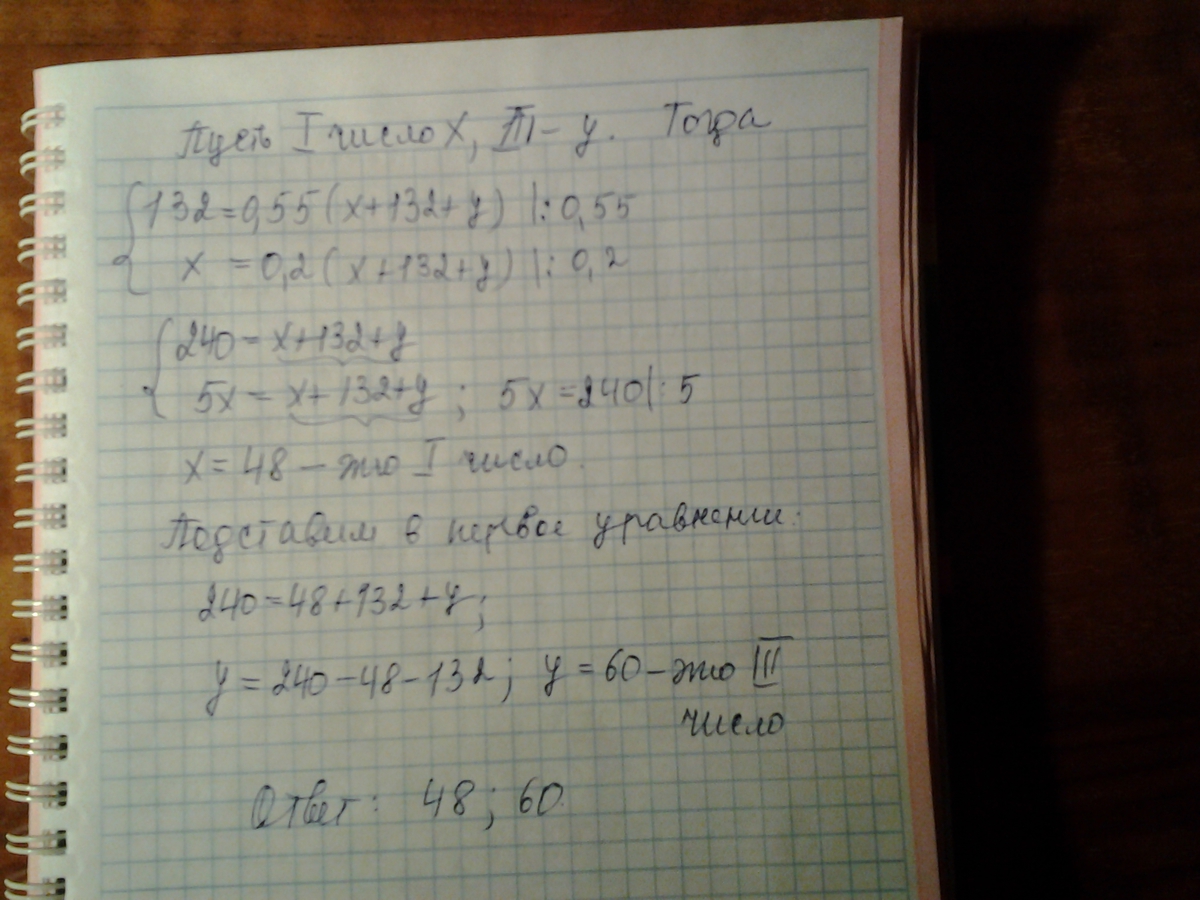 Пусть I число X, III – y. Тогда
132=0,55(x+132+y) |:0,55
x =0,2(x+132+y) |:0,2
240=x+132+y
5x=x+132+y; 5x=240|:5
x=48 – это I число.
Подставим в первое уравнении:
240=48+132+y;
y=240-48-132; y=60 – это III
число
Ответ: 48; 60.